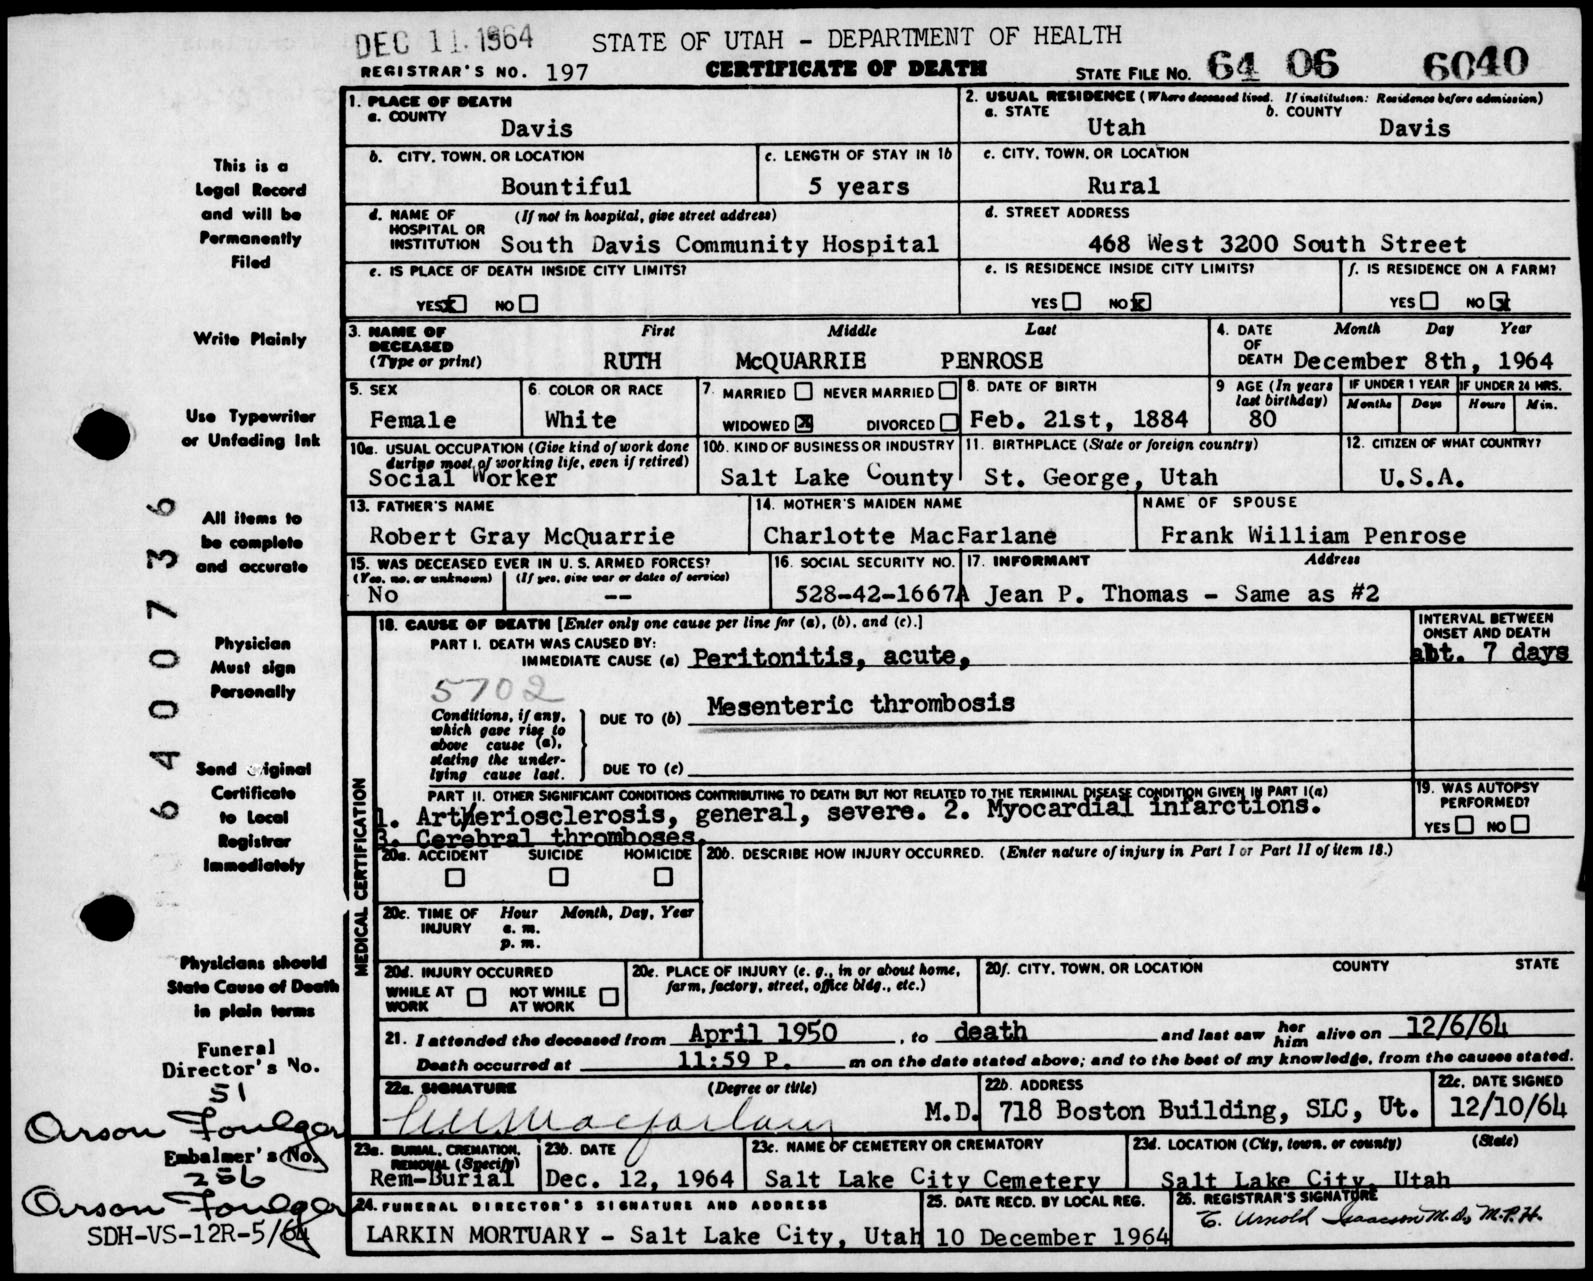 DEC 11 1964
STATE OF UTAH - DEPARTMENT OF HEALTH
REGISTRAR'S NO. 197
CERTIFICATE OF DEATH
STATE FILE NO. 64 06 6040
1. PLACE OF DEATH
a. COUNTY
Davis
2. USUAL RESIDENCE (Where deceased lived. If institution: Residence before admission)
a. STATE
Utah
b. COUNTY
Davis
b. CITY, TOWN, OR LOCATION
Bountiful
c. LENGTH OF STAY IN 1b
5 years
c. CITY, TOWN, OR LOCATION
Rural
d. NAME OF HOSPITAL OR INSTITUTION
(If not in hospital, give street address)
South Davis Community Hospital
d. STREET ADDRESS
468 West 3200 South Street
e. IS PLACE OF DEATH INSIDE CITY LIMITS?
YES X NO
e. IS RESIDENCE INSIDE CITY LIMITS?
YES NO X
f. IS RESIDENCE ON A FARM?
YES NO X
3. NAME OF DECEASED
(Type or print)
First Middle Last
RUTH McQUARRIE PENROSE
4. DATE OF DEATH
Month Day Year
December 8th, 1964
5. SEX
Female
6. COLOR OR RACE
White
7. MARRIED NEVER MARRIED
WIDOWED X DIVORCED
8. DATE OF BIRTH
Feb. 21st, 1884
9 AGE (In years last birthday)
80
IF UNDER 1 YEAR
Months Days
IF UNDER 24 HRS.
Hours Min.
10a. USUAL OCCUPATION (Give kind of work done during most of working life, even if retired)
Social Worker
10b. KIND OF BUSINESS OR INDUSTRY
Salt Lake County
11. BIRTHPLACE (State or foreign country)
St. George, Utah
12. CITIZEN OF WHAT COUNTRY?
U.S.A.
13. FATHER'S NAME
Robert Gray McQuarrie
14. MOTHER'S MAIDEN NAME
Charlotte MacFarlane
NAME OF SPOUSE
Frank William Penrose
15. WAS DECEASED EVER IN U. S. ARMED FORCES?
(Yes, no, or unknown)
No
(If yes, give war or dates of service)
--
16. SOCIAL SECURITY NO.
528-42-1667A
17. INFORMANT Address
Jean P. Thomas - Same as #2
18. CAUSE OF DEATH [Enter only one cause per line for (a), (b), and (c).]
PART I. DEATH WAS CAUSED BY:
IMMEDIATE CAUSE (a) Peritonitis, acute,
INTERVAL BETWEEN ONSET AND DEATH
abt. 7 days
5702
Conditions, if any, which gave rise to above cause (a), stating the underlying cause last.
DUE TO (b) Mesenteric thrombosis
DUE TO (c)
PART II. OTHER SIGNIFICANT CONDITIONS CONTRIBUTING TO DEATH BUT NOT RELATED TO THE TERMINAL DISEASE CONDITION GIVEN IN PART I(a)
1. Artheriosclerosis, general, severe. 2. Myocardial infarctions.
3. Cerebral thromboses.
19. WAS AUTOPSY PERFORMED?
YES NO
MEDICAL CERTIFICATION
20a. ACCIDENT SUICIDE HOMICIDE
20b. DESCRIBE HOW INJURY OCCURRED. (Enter nature of injury in Part I or Part II of item 18.)
20c. TIME OF INJURY
Hour Month, Day, Year
a. m.
p. m.
20d. INJURY OCCURRED
WHILE AT WORK NOT WHILE AT WORK
20e. PLACE OF INJURY (e. g., in or about home, farm, factory, street, office bldg., etc.)
20f. CITY, TOWN, OR LOCATION COUNTY STATE
21. I attended the deceased from April 1950, to death and last saw her him alive on 12/6/64
Death occurred at 11:59 P. m on the date stated above; and to the best of my knowledge, from the causes stated.
22a. SIGNATURE (Degree or title)
MacFarlane M.D.
22b. ADDRESS
718 Boston Building, SLC, Ut.
22c. DATE SIGNED
12/10/64
23a. BURIAL, CREMATION, REMOVAL (Specify)
Rem-Burial
23b. DATE
Dec. 12, 1964
23c. NAME OF CEMETERY OR CREMATORY
Salt Lake City Cemetery
23d. LOCATION (City, town, or county) (State)
Salt Lake City, Utah
24. FUNERAL DIRECTOR'S SIGNATURE AND ADDRESS
LARKIN MORTUARY - Salt Lake City, Utah
25. DATE RECD. BY LOCAL REG.
10 December 1964
26. REGISTRAR'S SIGNATURE
C. Arnold Isaacson M.D., M.P.H.
This is a
Legal Record
and will be
Permanently
Filed
Write Plainly
Use Typewriter
or Unfading Ink
All items to
be complete
and accurate
Physician
Must sign
Personally
Send original
Certificate
to Local
Registrar
Immediately
Physicians should
State Cause of Death
in plain terms
6400736
Funeral
Director's No.
51
Orson Foulger
Embalmer's No.
256
Orson Foulger
SDH-VS-12R-5/64